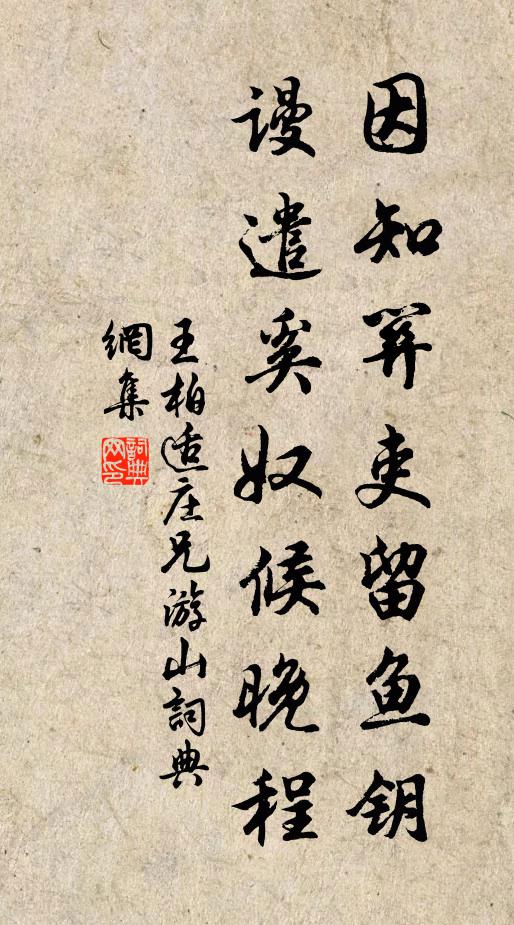 因知关吏留鱼钥
謾遣奚奴候晚程
王柏适庄兄游山詞典
網集
詞典
网印